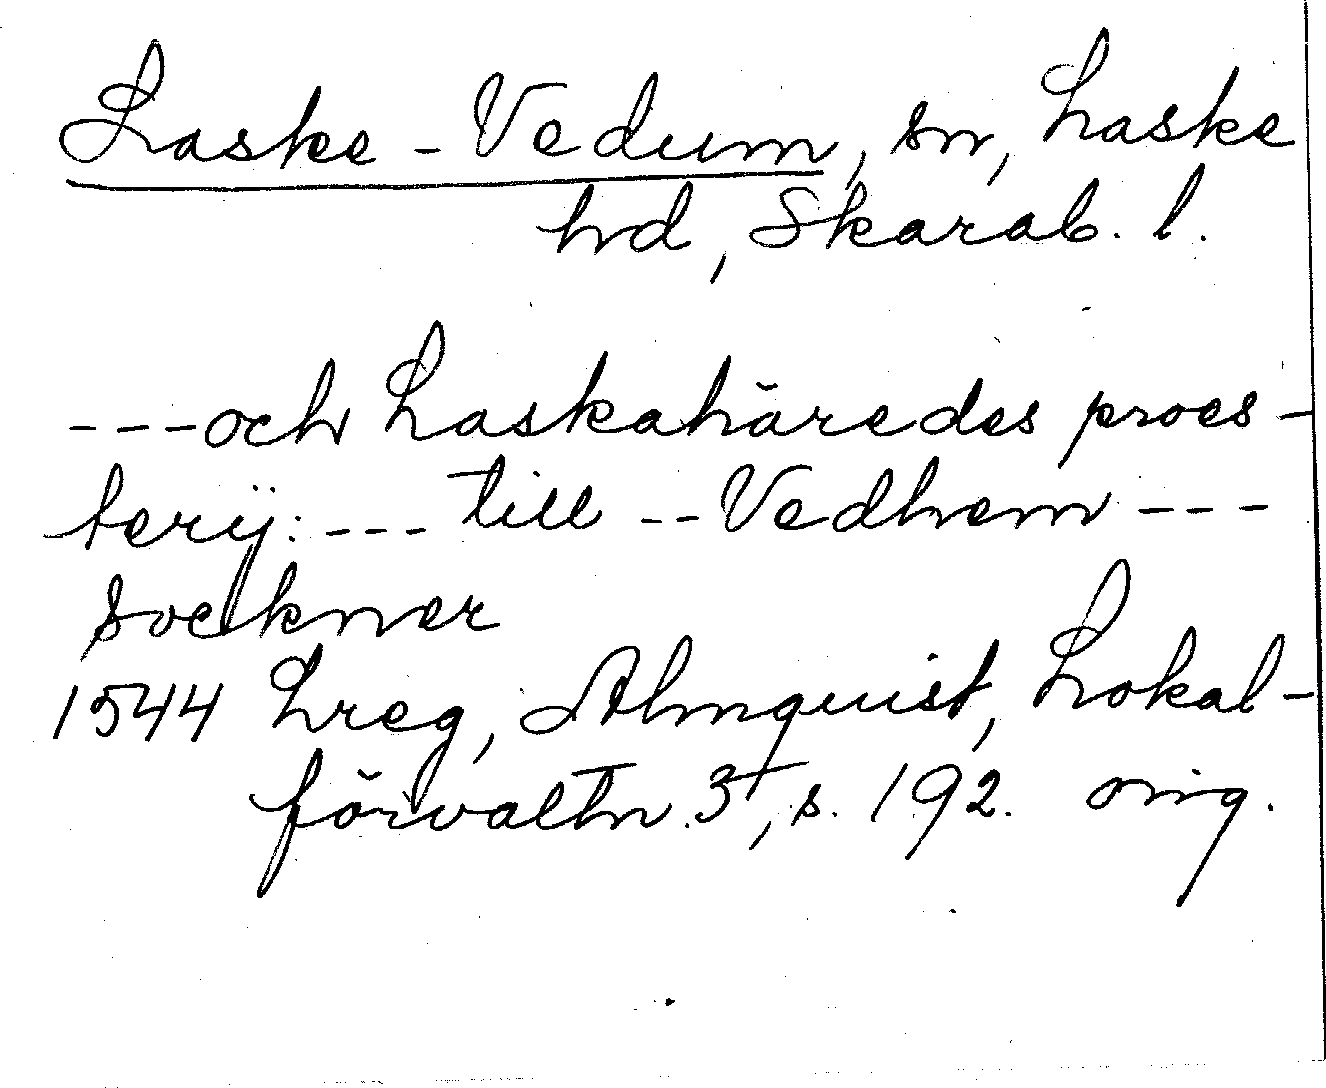 Laske-Vedum, sn, Laske
hd, Skarab. l.
---och Laskahäredes proes-
terij: --- till -- Vedhem ---
soclkner
1544 Lreg, Almquist, Lokal-
förvaltn. 3, s. 192. orig.